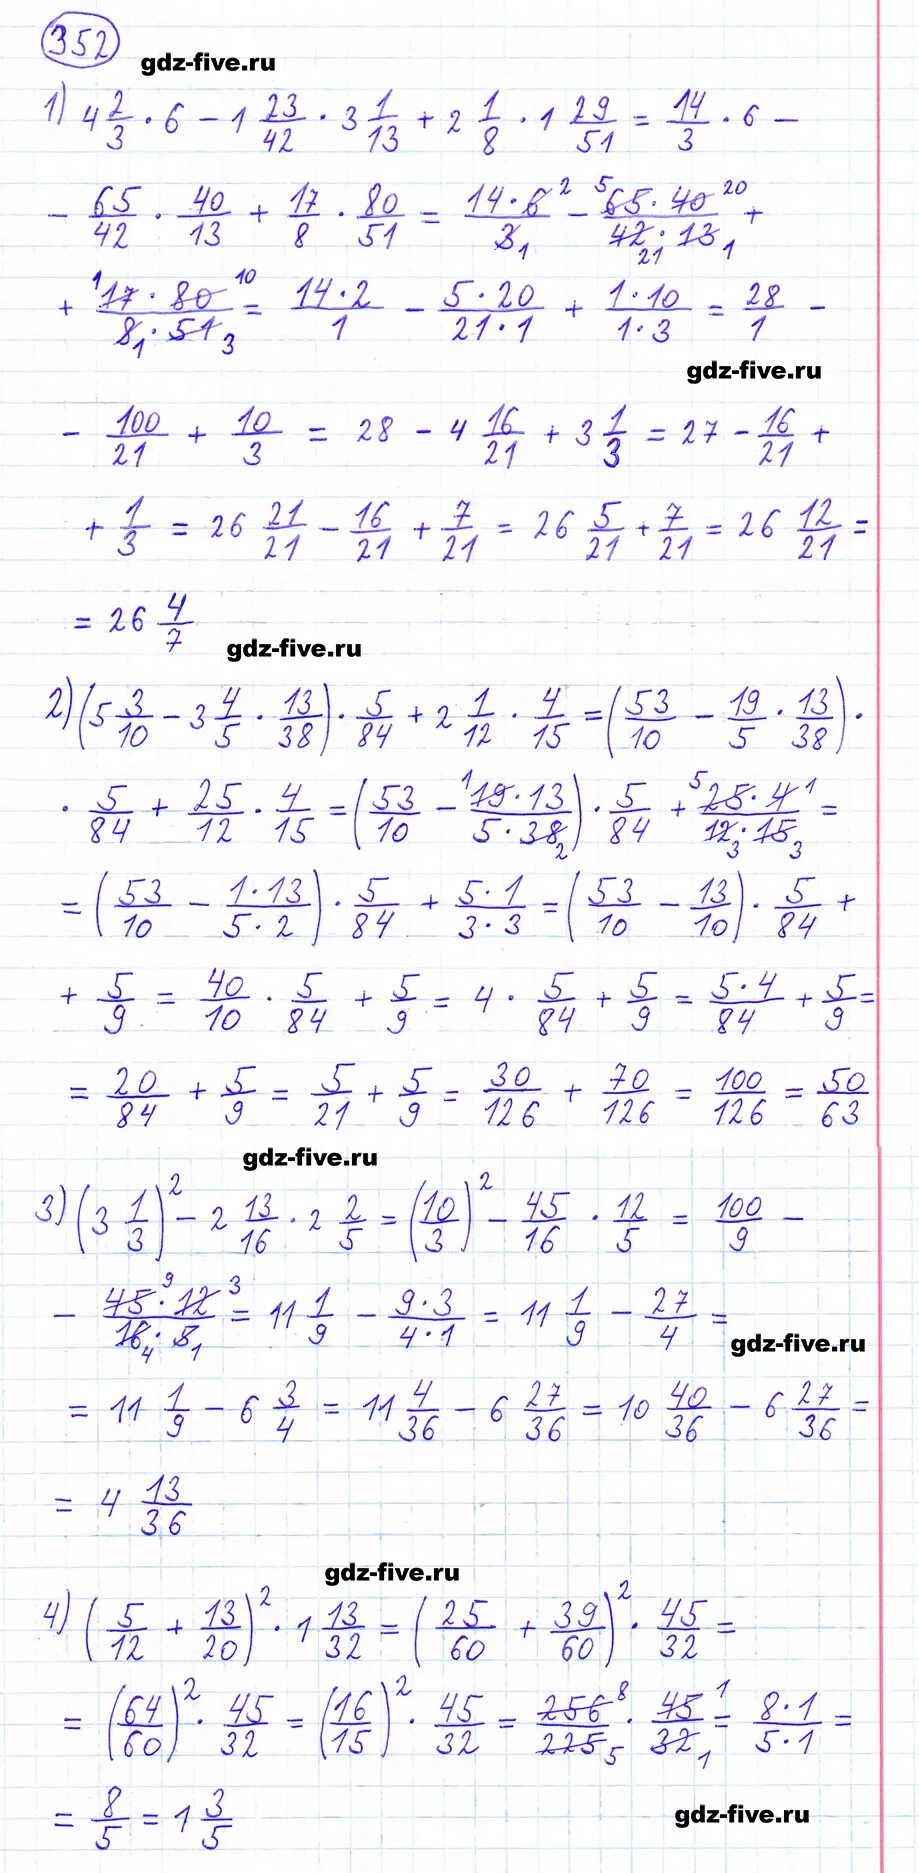 352
gdz-five.ru
1) 4 2/3 · 6 − 1 23/42 · 3 1/13 + 2 1/8 · 1 29/51 = 14/3 · 6 −
− 65/42 · 40/13 + 17/8 · 80/51 = 14·6 2/3 1 − 5 65·40 20/42 21·13 1 +
+ 1 17·80 10/8 1·51 3 = 14·2/1 − 5·20/21·1 + 1·10/1·3 = 28/1 −
gdz-five.ru
− 100/21 + 10/3 = 28 − 4 16/21 + 3 1/3 = 27 − 16/21 +
+ 1/3 = 26 21/21 − 16/21 + 7/21 = 26 5/21 + 7/21 = 26 12/21 =
= 26 4/7
gdz-five.ru
2) (5 3/10 − 3 4/5 · 13/38) · 5/84 + 2 1/12 · 4/15 = (53/10 − 19/5 · 13/38) ·
· 5/84 + 25/12 · 4/15 = (53/10 − 1 19·13/5·38 2) · 5/84 + 5 25·4 1/12 3·15 3 =
= (53/10 − 1·13/5·2) · 5/84 + 5·1/3·3 = (53/10 − 13/10) · 5/84 +
+ 5/9 = 40/10 · 5/84 + 5/9 = 4 · 5/84 + 5/9 = 5·4/84 + 5/9 =
= 20/84 + 5/9 = 5/21 + 5/9 = 30/126 + 70/126 = 100/126 = 50/63
gdz-five.ru
3) (3 1/3)² − 2 13/16 · 2 2/5 = (10/3)² − 45/16 · 12/5 = 100/9 −
− 45 9·12 3/16 4·5 1 = 11 1/9 − 9·3/4·1 = 11 1/9 − 27/4 =
gdz-five.ru
= 11 1/9 − 6 3/4 = 11 4/36 − 6 27/36 = 10 40/36 − 6 27/36 =
= 4 13/36
gdz-five.ru
4) (5/12 + 13/20)² · 1 13/32 = (25/60 + 39/60)² · 45/32 =
= (64/60)² · 45/32 = (16/15)² · 45/32 = 256 8/225 5 · 45 1/32 1 = 8·1/5·1 =
= 8/5 = 1 3/5
gdz-five.ru